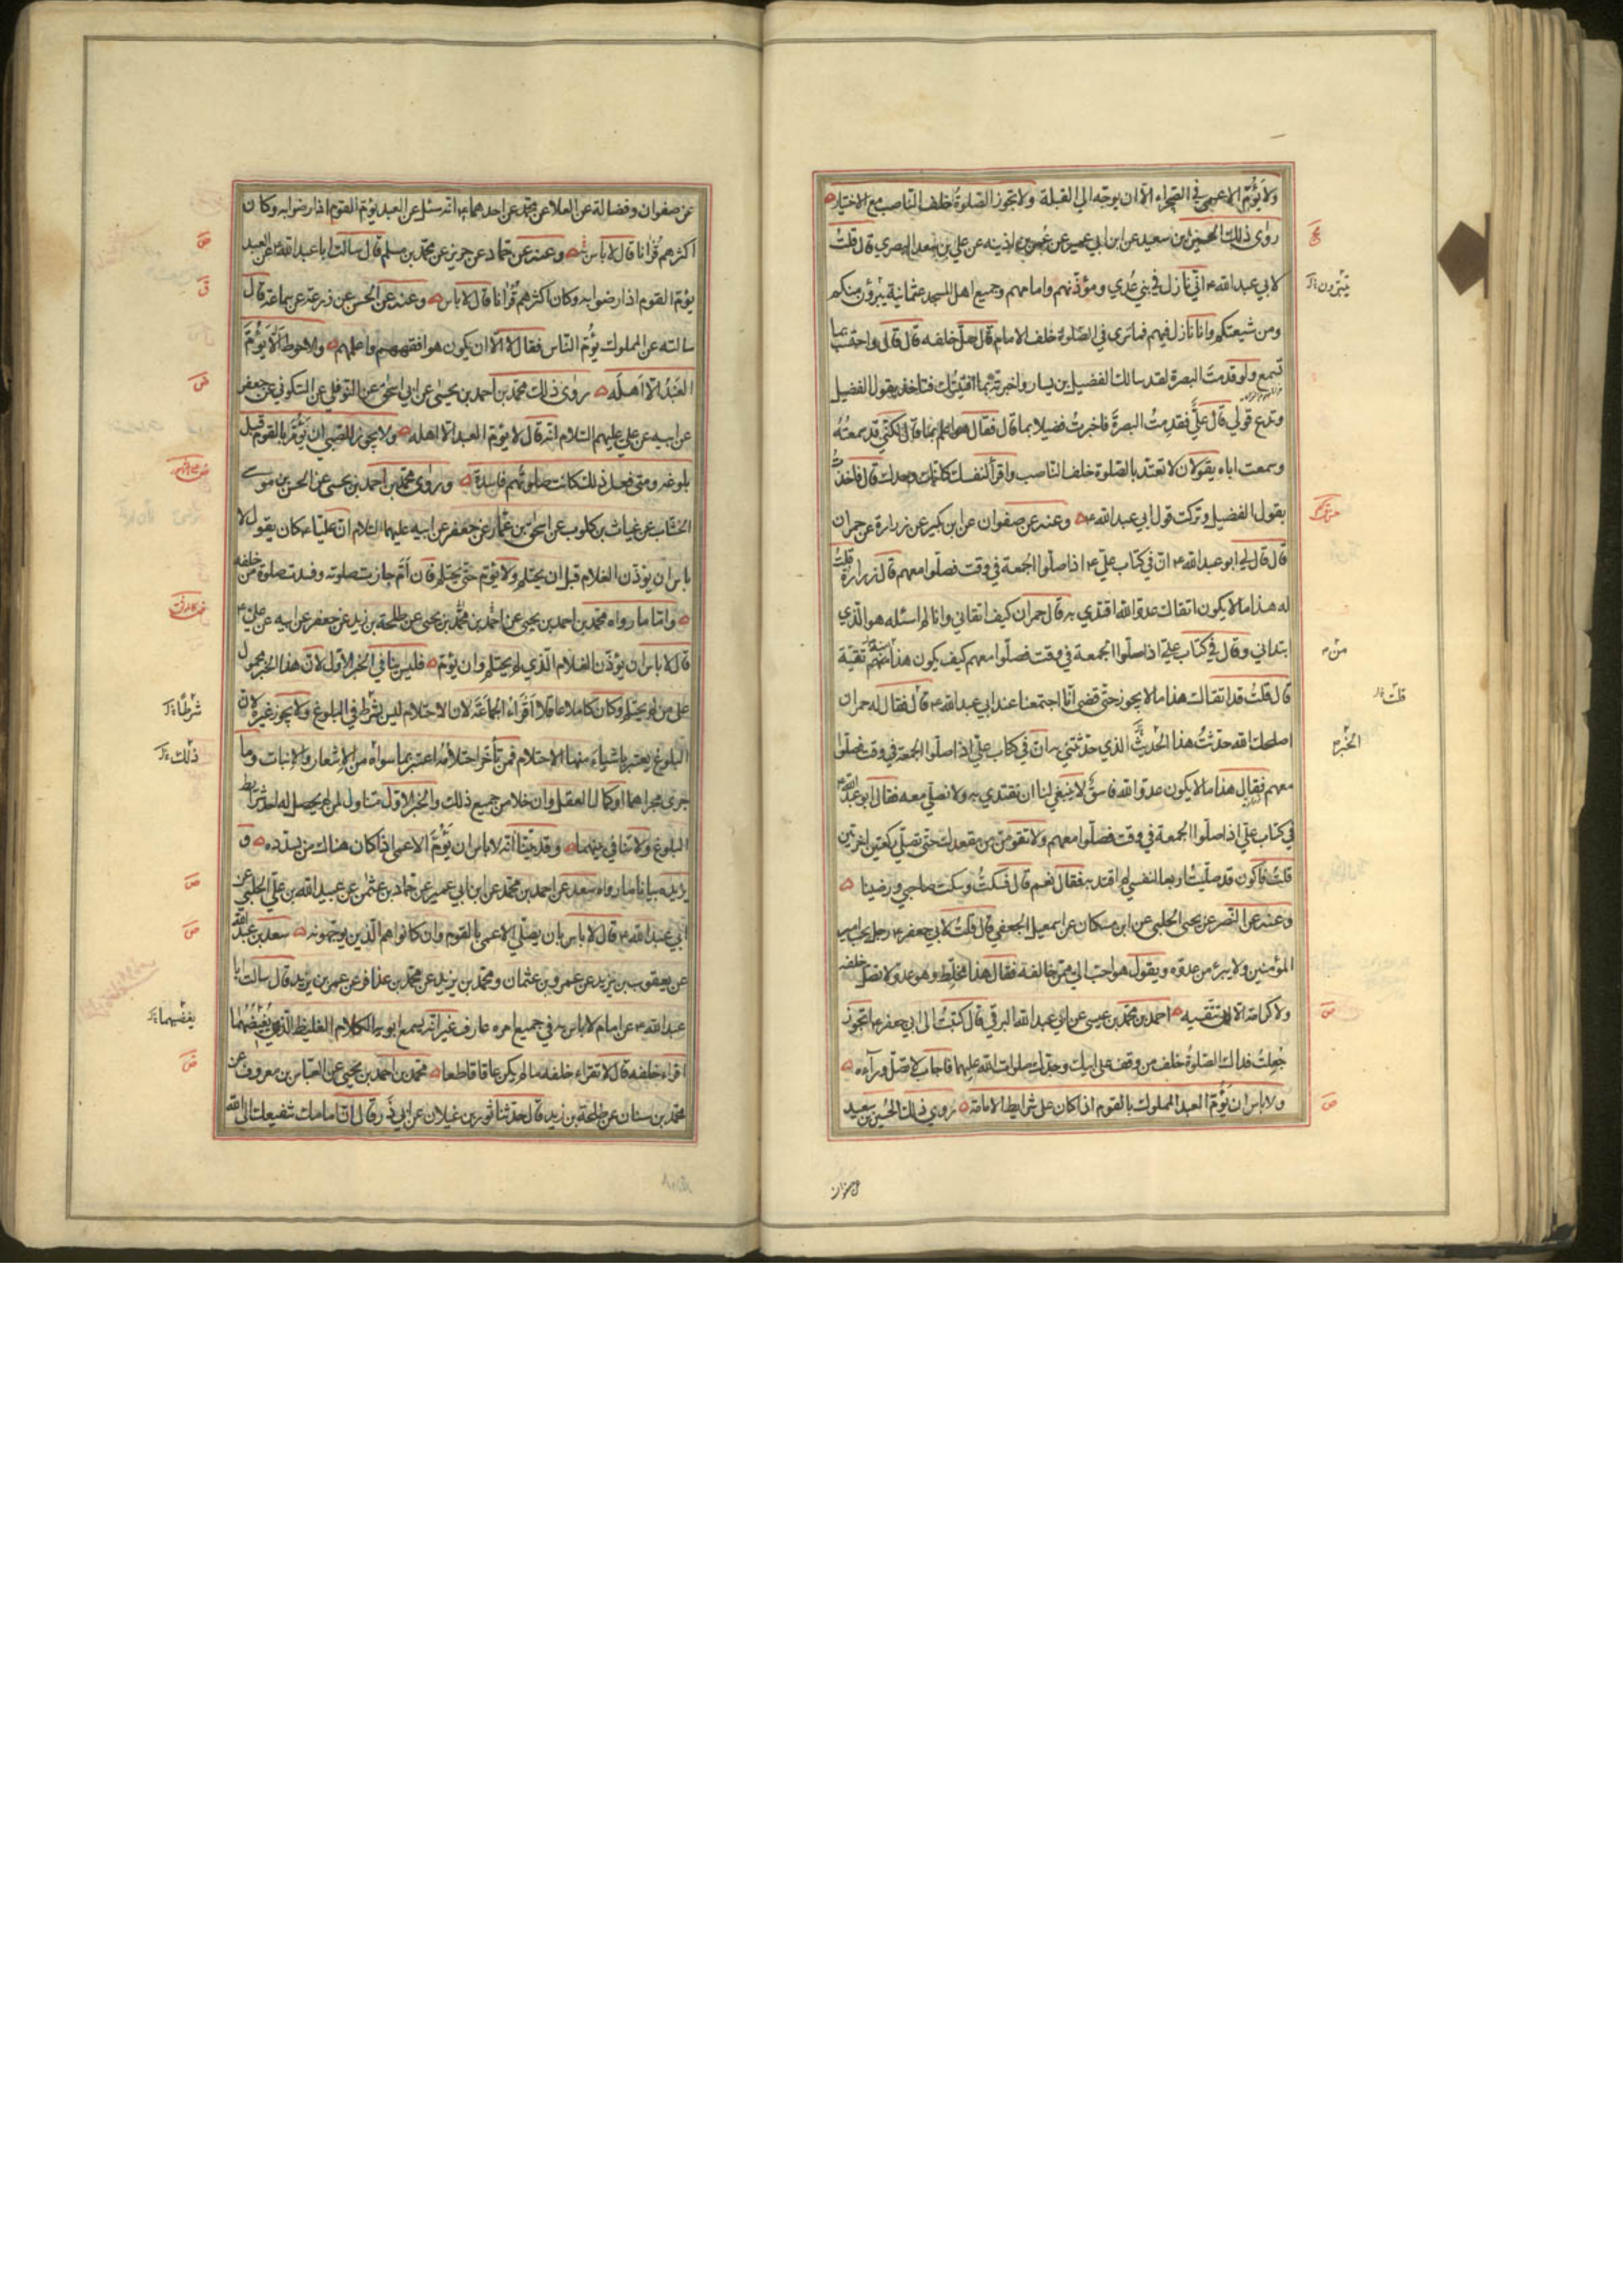 ولا يؤم الاعمى في الصحراء الا ان يوجه الى القبلة ولا تجوز الصلوة خلف الناصب مع الاختيار
روى ذلك الحسين بن سعيد عن ابن ابي عمير عن عمر بن اذينه عن علي بن سعد البصري قال قلت
لابي عبد الله ع اني نازل في بني عدي ومؤذنهم وامامهم وجميع اهل المسجد عثمانية يبرؤن منكم
ومن شيعتكم وانا نازل فيهم فما ترى في الصلوة خلف الامام قال صل خلفه قال قال واحتسب بما
تسمع ولو قدمت البصرة لقد سالك الفضيل بن يسار واخبرته بما افتيتك فتاخذ بقول الفضيل
وتدع قولي قال علي فقدمت البصرة فاخبرت فضيلا بما قال فقال هو اعلم بما قال لكني قد سمعته
وسمعت اباه يقولان لا تعتد بالصلوة خلف الناصب واقرأ لنفسك كانك وحدك قال فاخذت
بقول الفضيل وتركت قول ابي عبد الله ع وعنه عن صفوان عن ابن بكير عن زرارة عن حمران
قال قال لي ابو عبد الله ع ان في كتاب علي ع اذا صلوا الجمعة في وقت فصلوا معهم قال زرارة قلت
له هذا ما لا يكون اتقاك عدو الله اقتدي به قال حمران كيف اتقاني وانا لم اسئله هو الذي
ابتداني وقال في كتاب علي ع اذا صلوا الجمعة في وقت فصلوا معهم كيف يكون هذا منه تقية
قال قلت قد اتقاك هذا ما لا يجوز حتى قضى انا اجتمعنا عند ابي عبد الله ع قال فقال له حمران
اصلحك الله حدثت هذا الحديث الذي حدثتني به ان في كتاب علي اذا صلوا الجمعة في وقت فصلوا
معهم فقال هذا ما لا يكون عدو الله فاسق لا ينبغي لنا ان نقتدي به ولا نصلي معه فقال ابو عبد الله ع
في كتاب علي اذا صلوا الجمعة في وقت فصلوا معهم ولا تقومن من مقعدك حتى تصلي ركعتين اخرتين
قلت فاكون قد صليت اربعا لنفسي لم اقتد به فقال نعم قال فسكت وسكت صاحبي ورضينا
وعنه عن النضر عن يحيى الحلبي عن ابن مسكان عن اسمعيل الجعفي قال قلت لابي جعفر ع رجل يحب امير
المؤمنين ولا يبرء من عدوه ويقول هو احب الي ممن خالفه فقال هذا مخلط وهو عدو لا تصل خلفه
ولا كرامة الا ان تتقيه احمد بن محمد بن عيسى عن ابي عبد الله البرقي قال كتبت الى ابي جعفر ع اتجوز
جعلت فداك الصلوة خلف من وقف على ابيك وجدك صلوات الله عليهما فاجاب لا تصل ورآءه
ولا باس ان يؤم العبد المملوك بالقوم اذا كان على شرايط الامامة روى ذلك الحسين بن سعيد
يتبرون
من
قلت
الخبر
عن صفوان
عن صفوان وفضالة عن العلا عن محمد عن احدهما ع انه سئل عن العبد يؤم القوم اذا رضوا به وكان
اكثرهم قرانا قال لا باس به وعنه عن حماد عن حريز عن محمد بن مسلم قال سالت ابا عبد الله ع عن العبد
يؤم القوم اذا رضوا به وكان اكثرهم قرانا قال لا باس وعنه عن الحسن عن زرعة عن سماعة قال
سالته عن المملوك يؤم الناس فقال لا الا ان يكون هو افقههم واعلمهم والاحوط الا يؤم
العبد الا اهله روى ذلك محمد بن احمد بن يحيى عن ابي اسحق عن النوفلي عن السكوني عن جعفر
عن ابيه عن علي عليهم السلام انه قال لا يؤم العبد الا اهله ولا يجوز للصبي ان يؤم بالقوم قبل
بلوغه ومتى فعل ذلك كانت صلوتهم فاسدة وروى محمد بن احمد بن يحيى عن الحسن بن موسى
الخشاب عن غياث بن كلوب عن اسحق بن عمار عن جعفر عن ابيه عليهما السلام ان عليا ع كان يقول لا
باس ان يؤذن الغلام قبل ان يحتلم ولا يؤم حتى يحتلم فان ام جازت صلوته وفسدت صلوة من خلفه
واما ما رواه محمد بن احمد بن يحيى عن احمد بن محمد بن يحيى عن طلحة بن زيد عن جعفر عن ابيه عن علي ع
قال لا باس ان يؤذن الغلام الذي لم يحتلم وان يؤم فليس ينافي الخبر الاول لان هذا الخبر محمول
على من لم يحتلم وكان كاملا عاقلا اقراء الجماعة لان الاحتلام ليس بشرط في البلوغ ولا يجوز غيره لان
البلوغ يعتبر باشياء منها الاحتلام فمن تأخر احتلامه اعتبر بما سواه من الاشعار والانبات وما
جرى مجراهما او كمال العقل وان خلا من جميع ذلك والخبر الاول متناول لمن لم يحصل له احد شرائط
البلوغ ولا تنافي بينهما وقد بينا انه لا باس ان يؤم الاعمى اذا كان هناك من يسدده و
يزيده بيانا ما رواه سعد عن احمد بن محمد عن ابن ابي عمير عن حماد بن عثمن عن عبيد الله بن علي الحلبي عن
ابي عبد الله ع قال لا باس بان يصلي الاعمى بالقوم وان كانوا هم الذين يوجهونه سعد بن عبد الله
عن يعقوب بن يزيد عن عمرو بن عثمان ومحمد بن يزيد عن محمد بن عذافر عن عمر بن يزيد قال سالت ابا
عبد الله ع عن امام لا باس به في جميع امره عارف غير انه يسمع ابويه الكلام الغليظ الذي يغيضهما
اقراء خلفه قال لا تقراء خلفه ما لم يكن عاقا قاطعا محمد بن احمد بن يحيى عن العباس بن معروف عن
محمد بن سنان عن طلحة بن زيد قال حدثنا ثور بن غيلان عن ابي ذر قال ان امامك شفيعك الى الله
شرطا
ذلك
يغضبهما